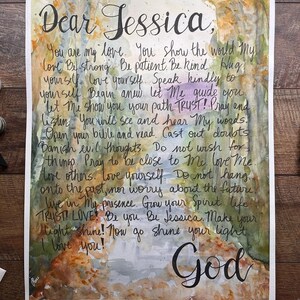 Dear Jessica,
You are my love. You show the world My
Love. Be strong. Be patient. Be kind. Hug
yourself. Love yourself. Speak kindly to
yourself. Begin anew. Let Me guide you
Let Me show you your path TRUST! Pray and
listen. You will see and hear My words.
Open your bible and read. Cast out doubts
Banish evil thoughts. Do not wish for
things. Pray to be close to Me Love Me
Love others. Love yourself. Do not hang
onto the past nor worry about the future
Live in My presence. Grow your Spirit life
TRUST! LOVE! Be you. Be Jessica. Make your
light shine! Now go shine your light
I love you!
God